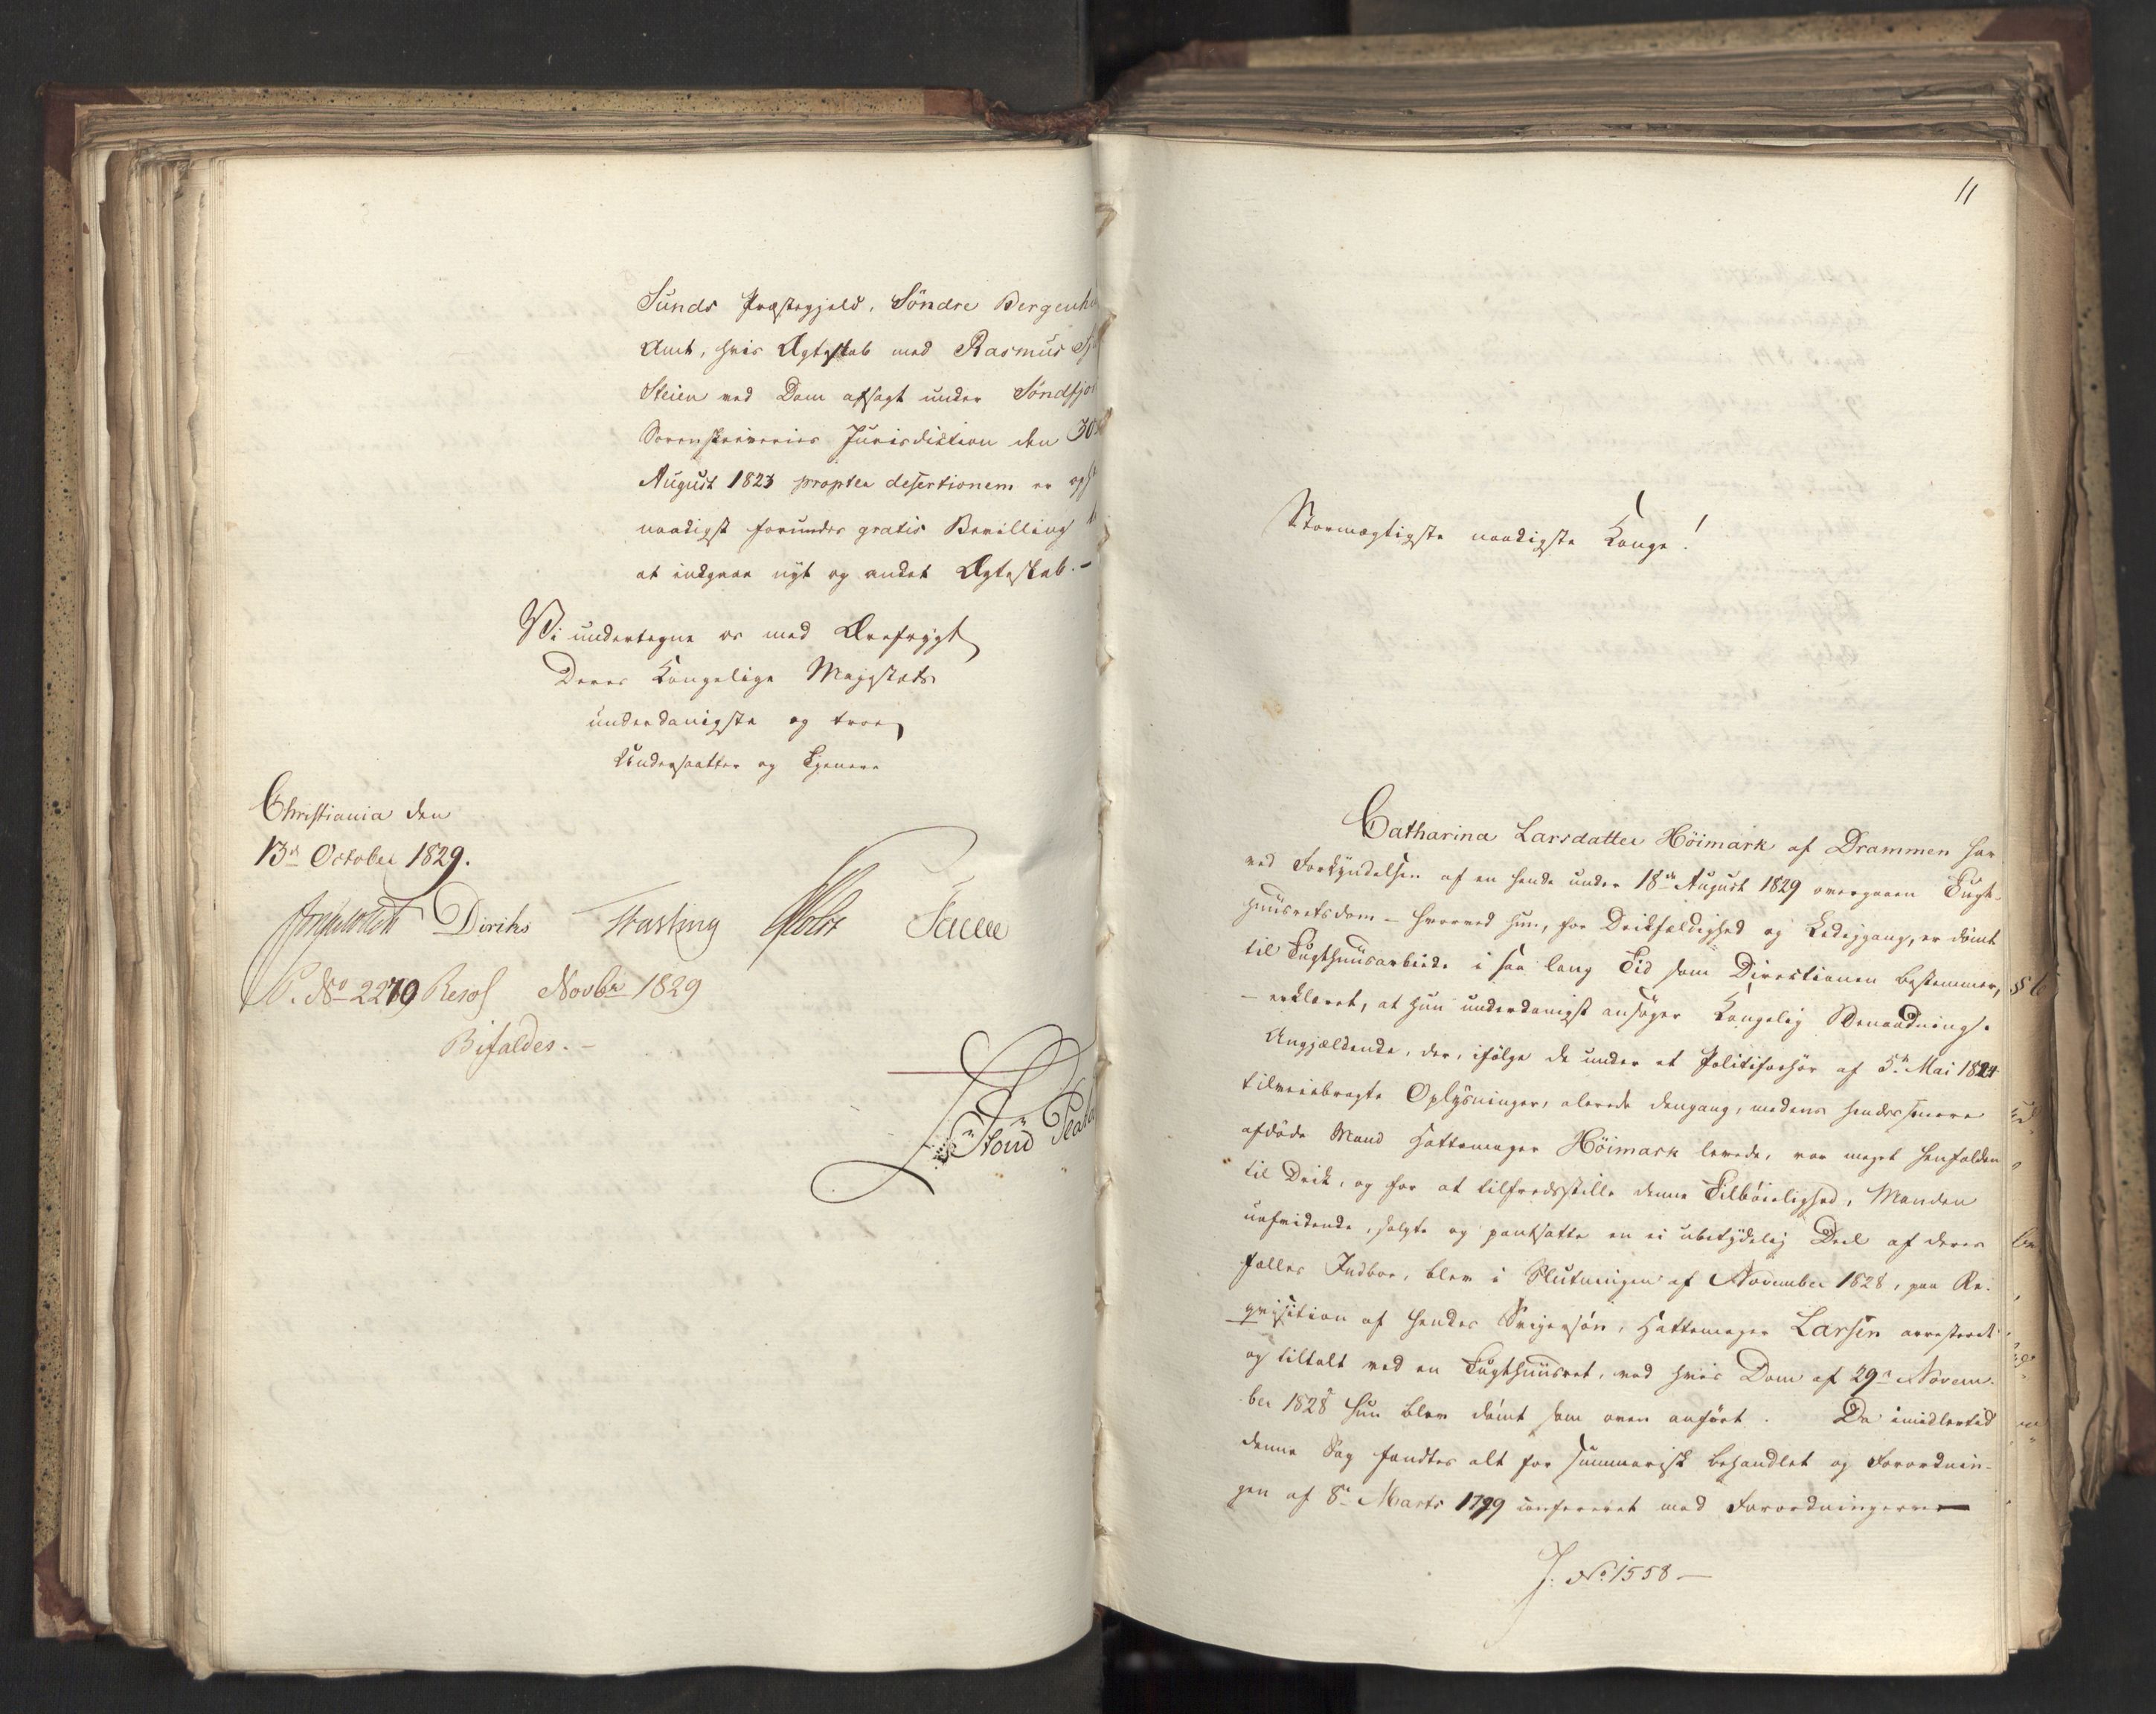 Sunds Præstegjeld, Söndre Bergenh
Amt, hvis Ægteskab med Rasmus
Steien ved Dom afsagt under Söndfjor
Sorenskriveries Jurisdiction den 30
August 1823 propter desertionem er oph
naadigst forundes gratis Bevilling
at indgaae nyt og andet Ægteskab.-
Vi undertegne os med Ærefrygt
Deres Kongelige Majestæts
underdanigste og troe
Undersaatter og Tjenere
Christiania den
13de October 1829.
Diriks Fasting Holst
No 2270 Resol Novbr 1829
Bifaldes.-
11
Stormægtigste naadigste Konge!
Catharina Larsdatter Höimark af Drammen har
ved Forkyndelsen af en hende under 18de August 1829 overgaaen Tugt-
huusretsdom - hvorved hun, for Drikfældighed og Lediggang, er dömt
til Tugthuusarbeide i saa lang Tid som Directionen bestemmer,
- erklæret, at hun underdanigst ansöger Kongelig Benaadning.
Angjældende, der, ifölge de under et Politiforhör af 5te Mai 1824
tilveiebragte Oplysninger, alerede dengang, medens hendes senere
afdöde Mand Hattemager Höimark levede, var meget henfalden
til Drik, og for at tilfredsstille denne Tilböielighed, Manden
uafvidende, solgte og pantsatte en ei ubetydelig Deel af deres
fælles Indboe, blev i Slutningen af November 1828, paa Re-
qvisition af hendes Svigersön, Hattemager Larsen arresteret
og tiltalt ved en Tugthuusret, ved hvis Dom af 29de Novem-
ber 1828 hun blev dömt som oven anfört. Da imidlertid
denne Sag fandtes alt for summarisk behandlet og Forordnin-
gen af 8de Marts 1799 confereret med Forordningerne
J. No 1558 -